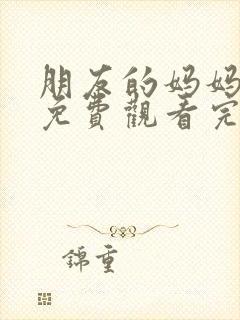 朋友的妈妈
免費觀看完
錦重